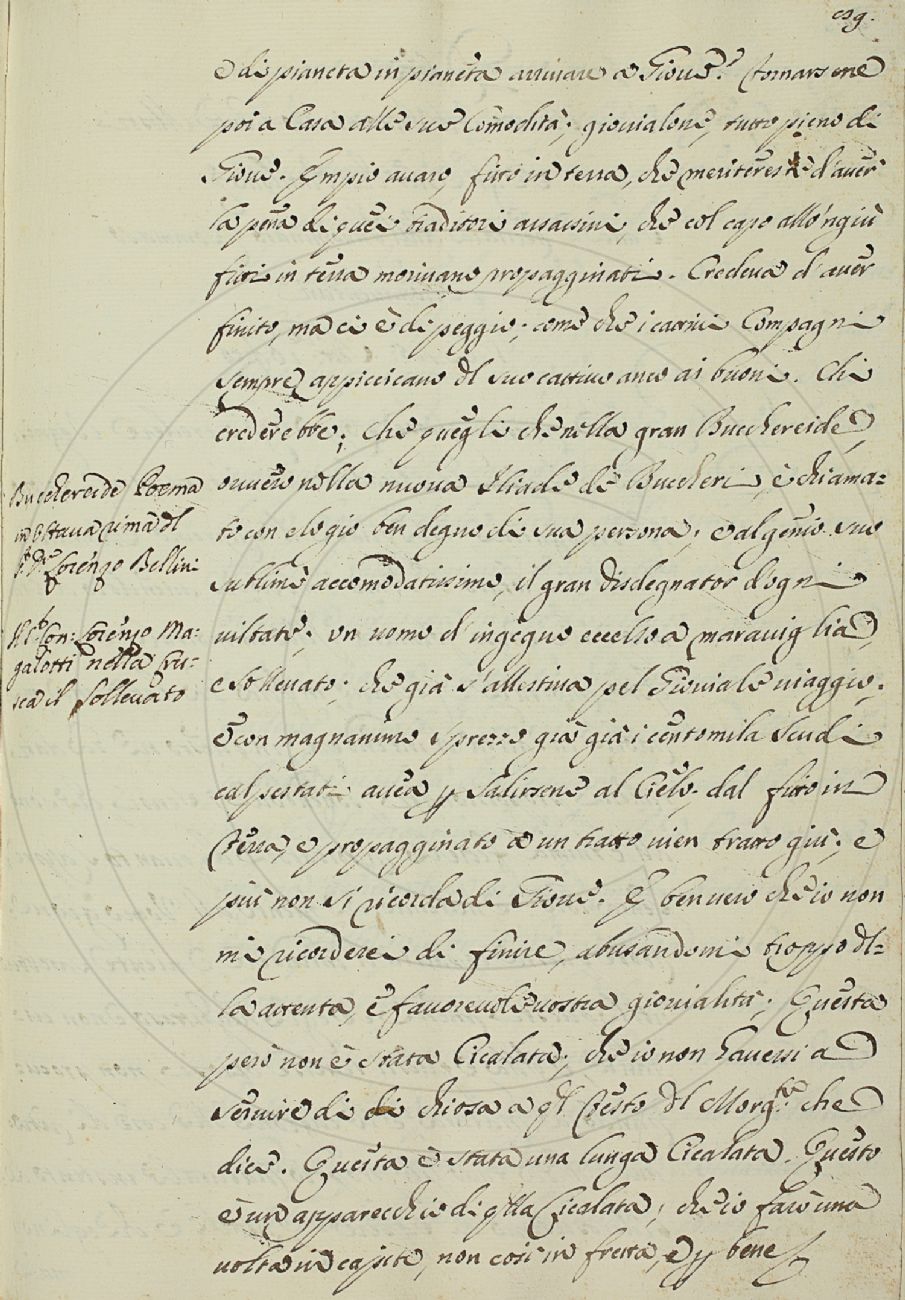 e di pianeta in pianeta arrivare a Giove? Tornarsene
poi a Casa alle sue Comodità; giovialone, tutto pieno di
Giove. Empio avaro, fitto in terra, che meriterest d'aver
la pena di quei traditori assassini, che col capo all'ongiù
fitti in terra morivano propagginati. Credeva d'aver
finito, ma ci è di peggio; come che i cattivi Compagni
sempre appiccicano dl suo cattivo anco ai buoni. Chi
crederebbe; Che quegli che nella gran Bucchereide
ovvero nella nuova Iliade de Buccheri è chiama-
to con elogio ben degno di sua persona; e al genio suo
sublime accomodatissimo, il gran disdegnator d'ogni
viltate; un uomo d'ingegno eccelso a maraviglia
e Sollevato; che già s'allestiva pel Gioviale viaggio;
e con magnanimo sprezzo già già i centomila Scudi
calpestati avea p Salirsene al Cielo; dal fitto in
Terra, e propagginato a un tratto vien tratto giù; e
più non si ricorda di Giove. E ben vero che io non
mi ricorderei di finire, abusandomi troppo dl-
la attenta, e favorevole vostra giovialità; Questa
però non è stata Cicalata; che io non havessi a
servire di di chiosa a ql Testo dl Morg:te che
dice. Questa è stata una lunga Cicalata. Questo
è un apparecchio di qlla Cicalata; che io farò una
volta in capite, non così in fretta, e p bene
Bucchereide Poema
in Ottava rima dl
Lorenzo Bellini
Con: Lorenzo Ma-
galotti nella Cru-
sca il Sollevato